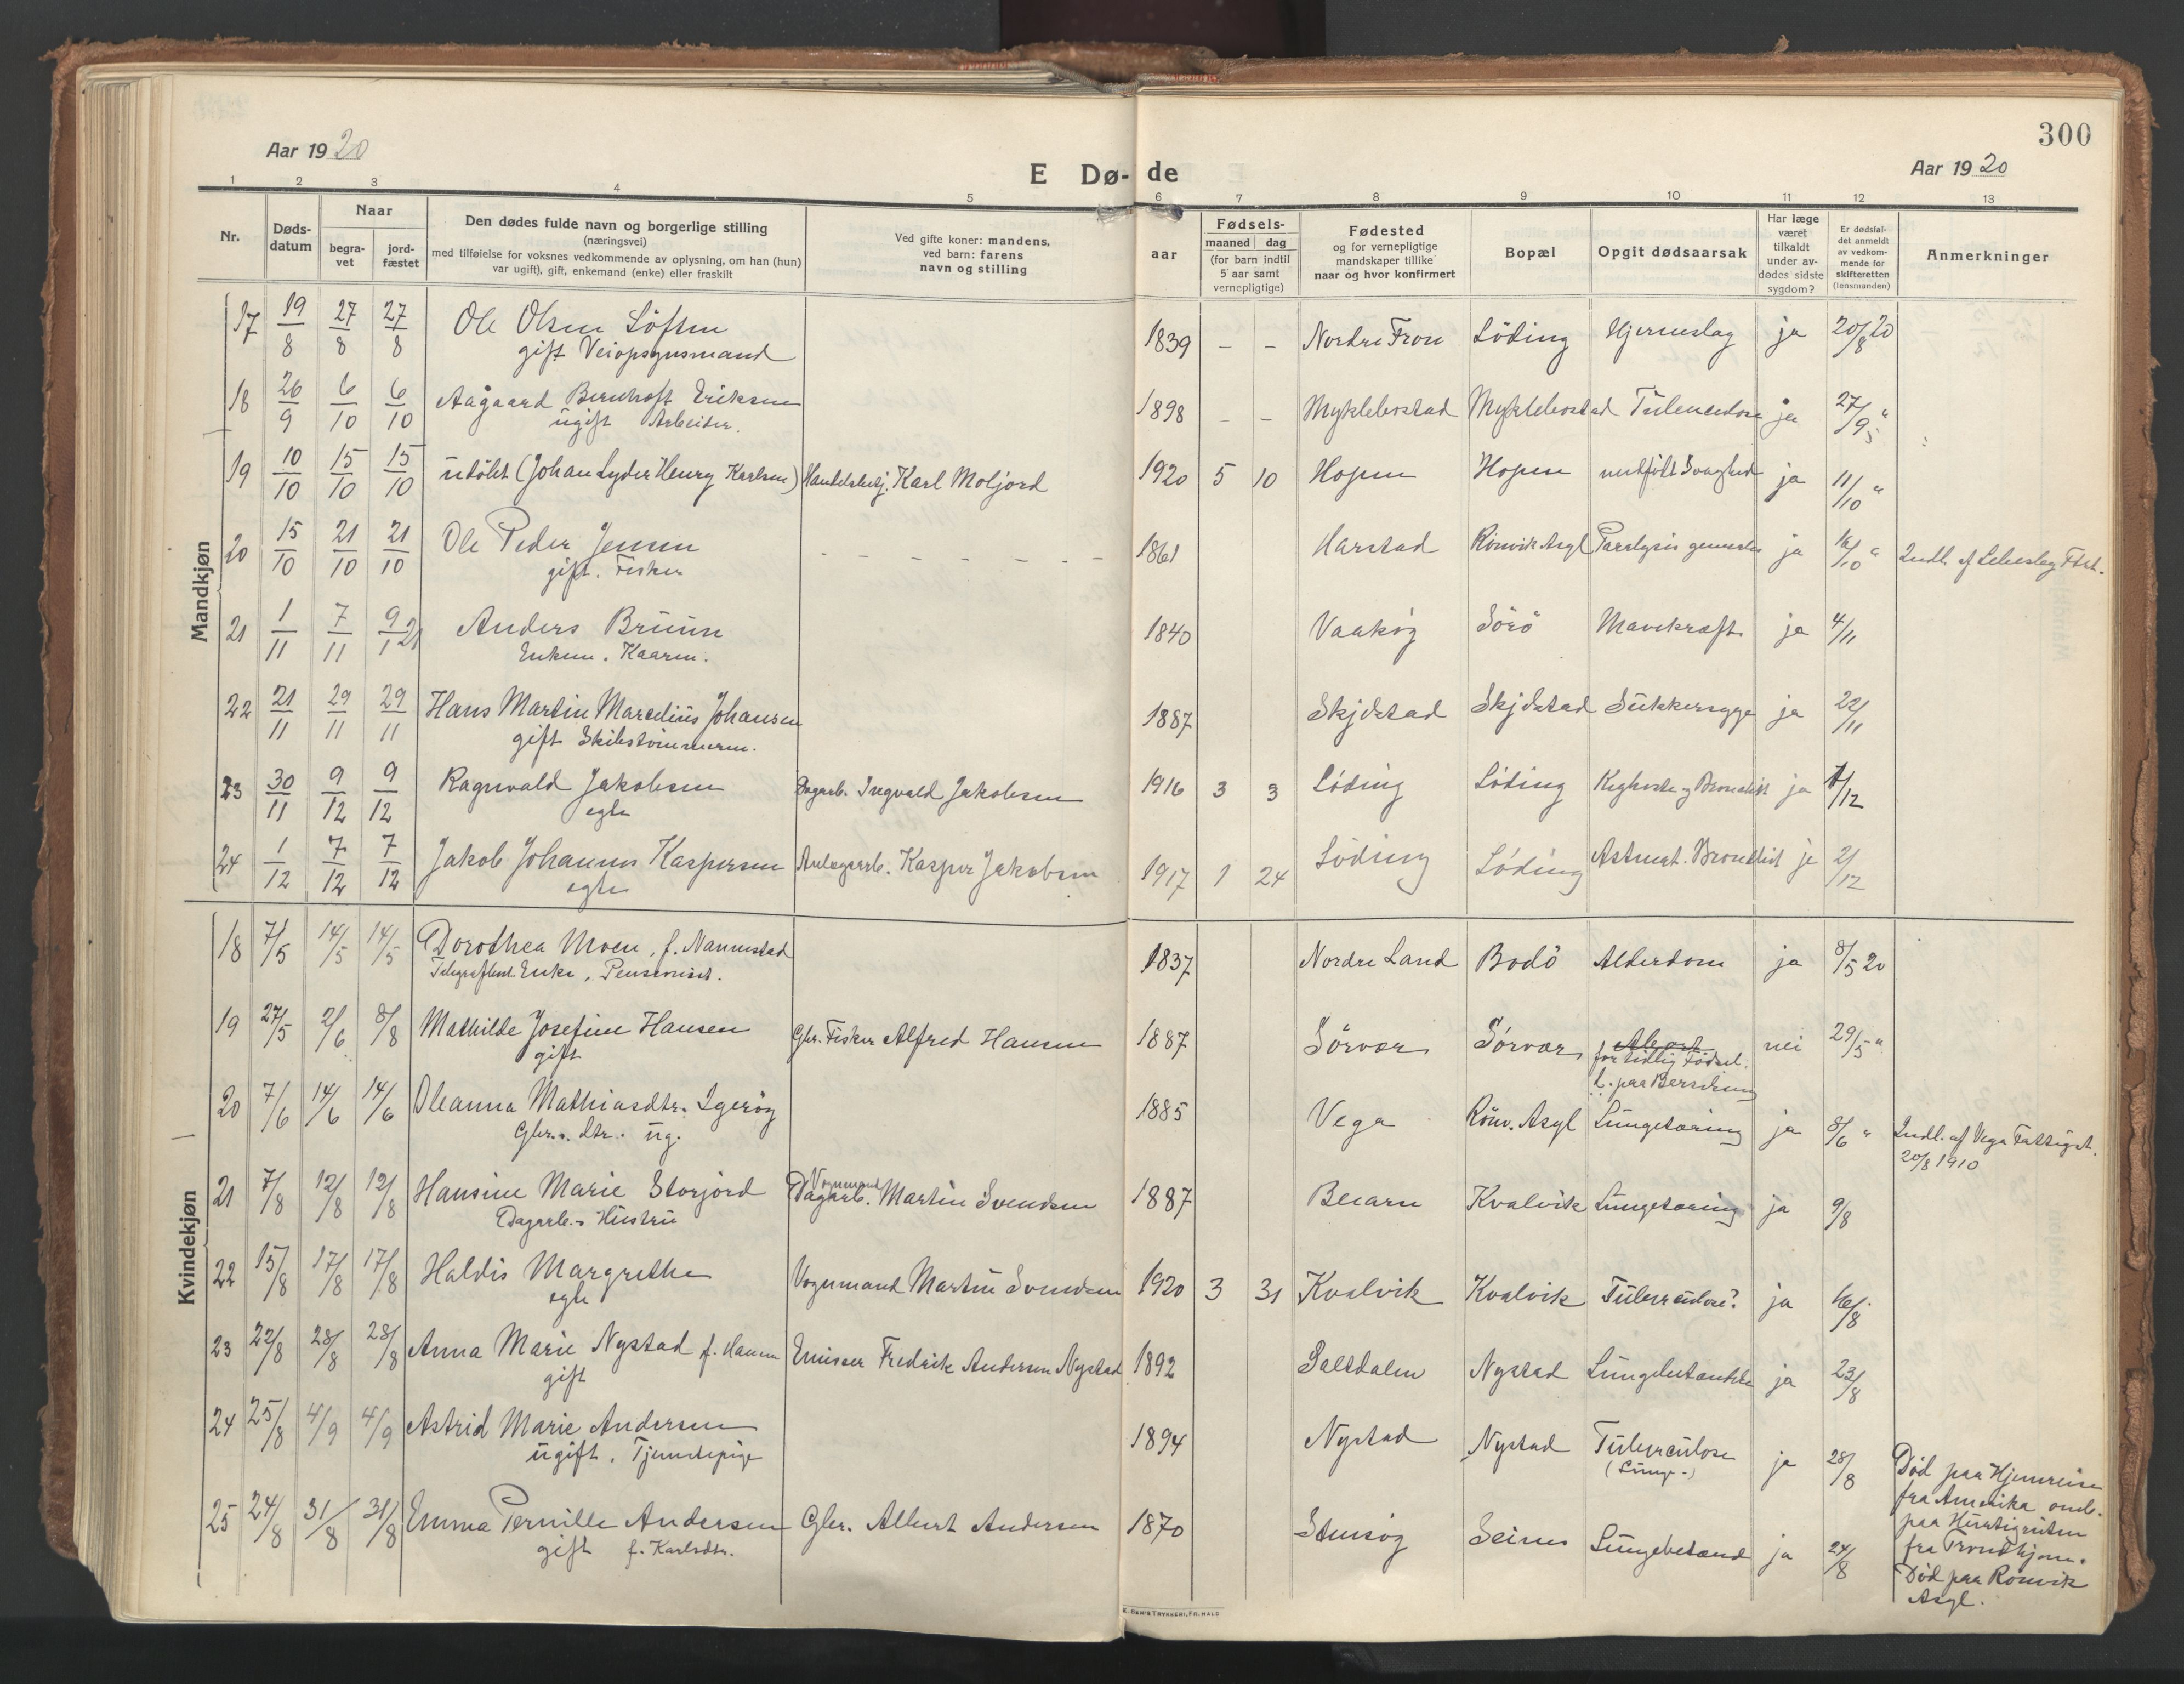 300
Aar 1920
E Dø- de
Aar 1920
1 2 3 4 5 6 7 8 9 10 11 12 13
Nr.
Døds-
datum
Naar
begra-
vet
jord-
fæstet
Den dødes fulde navn og borgerlige stilling
(næringsvei)
med tilføielse for voksnes vedkommende av oplysning, om han (hun)
var ugift), gift, enkemand (enke) eller fraskilt
Ved gifte koner: mandens,
ved barn: farens
navn og stilling
Fødsels-
aar
maaned dag
(for barn indtil
5 aar samt
vernepligtige)
Fødested
og for vernepligtige
mandskaper tillike
naar og hvor konfirmert
Bopæl
Opgit dødsaarsak
Har læge
været
tilkaldt
under av-
dødes sidste
sygdom?
Er dødsfal-
det anmeldt
av vedkom-
mende for
skifteretten
(lensmanden)
Anmerkninger
Mandkjøn
17 19/8 27/8 27/8 Ole Olsen Löften 1839 – – Nordre Fron Löding Hjerneslag ja 20/8 20
gift Veiopsynsmand
18 26/9 6/10 6/10 Aagaard Bernhoft Eriksen 1898 – – Myklebostad Myklebostad Tuberculose ja 27/9 "
ugift Arbeider.
19 10/10 15/10 15/10 udöbt (Johan Lyder Henry Karlsen) Handelsbetj. Karl Moljord 1920 5 10 Hopen Hopen medfödt Svaghed ja 11/10 "
20 15/10 21/10 21/10 Ole Peder Jensen – – – – – – 1861 Harstad Rönvik Asyl Paralysis generalis ja 16/10 " Indl. af Lebesby Fst.
gift. Fisker
21 1/11 7/11 9/1 21 Anders Bruun 1840 Vaaköy Sörö Mavekræft ja 4/11
Enkem. Kaarm.
22 21/11 29/11 29/11 Hans Martin Marselius Johansen 1887 Skjelstad Skjelstad Sukkersyge ja 22/11
gift Skibstömmerm.
23 30/11 9/12 9/12 Ragnvald Jakobsen Dagarb. Ingvald Jakobsen 1916 3 3 Löding Löding Kighoste og Bronchit ja 1/12
egte
24 1/12 7/12 7/12 Jakob Johannes Kaspersen Anlegsarb. Kasper Jakobsen 1917 1 24 Löding Löding Astmat. Bronchit ja 2/12
egte
Kvindekjøn
18 7/5 14/5 14/5 Dorothea Moen, f. Nannestad 1837 Nordre Land Bodö Alderdom ja 8/5 20
Telegrafbest. Enke, Pensionist.
19 27/5 2/6 8/8 Mathilde Josefine Hansen Gbr. Fisker Alfred Hansen 1887 Sörvær Sörvær Abort nei 29/5 "
gift
for tidlig Födsel.
b. paa Barselseng
20 7/6 14/6 14/6 Oleanna Mathiasdtr. Igeröy 1885 Vega Rönv. Asyl Lungetæring ja 8/6 " Indl. af Vega Fattigst.
Gbr.s. dtr. ug.
20/8 1910
21 7/8 12/8 12/8 Hansine Marie Storjord Vognmand
Dagarb. Martin Svendsen 1887 Beiarn Kvalvik Lungetæring ja 9/8
Dagarb.s Hustru
22 15/8 17/8 17/8 Haldis Margrethe Vognmand Martin Svendsen 1920 3 31 Kvalvik Kvalvik Tuberculose? ja 16/8
egte
23 22/8 28/8 28/8 Anna Marie Nystad f. Hansen Emissær Fredrik Andersen Nystad 1892 Saltdalen Nystad Lungebetændelse ja 23/8
gift
24 25/8 4/9 4/9 Astrid Marie Andersen 1894 Nystad Nystad Tuberculose ja 28/8
ugift. Tjenestepige
(Lunge-)
Död paa Hjemreise
fra Amerika omb.
paa Hurtigruten
fra Trondhjem.
25 24/8 31/8 31/8 Emma Pernille Andersen Gbr. Albert Andersen 1870 Stensöy Seines Lungebetænd ja 24/8
gift f. Karlsdtr.
Död paa Rönvik
Asyl.
E. SEM'S TRYKKERI, FR.HALD